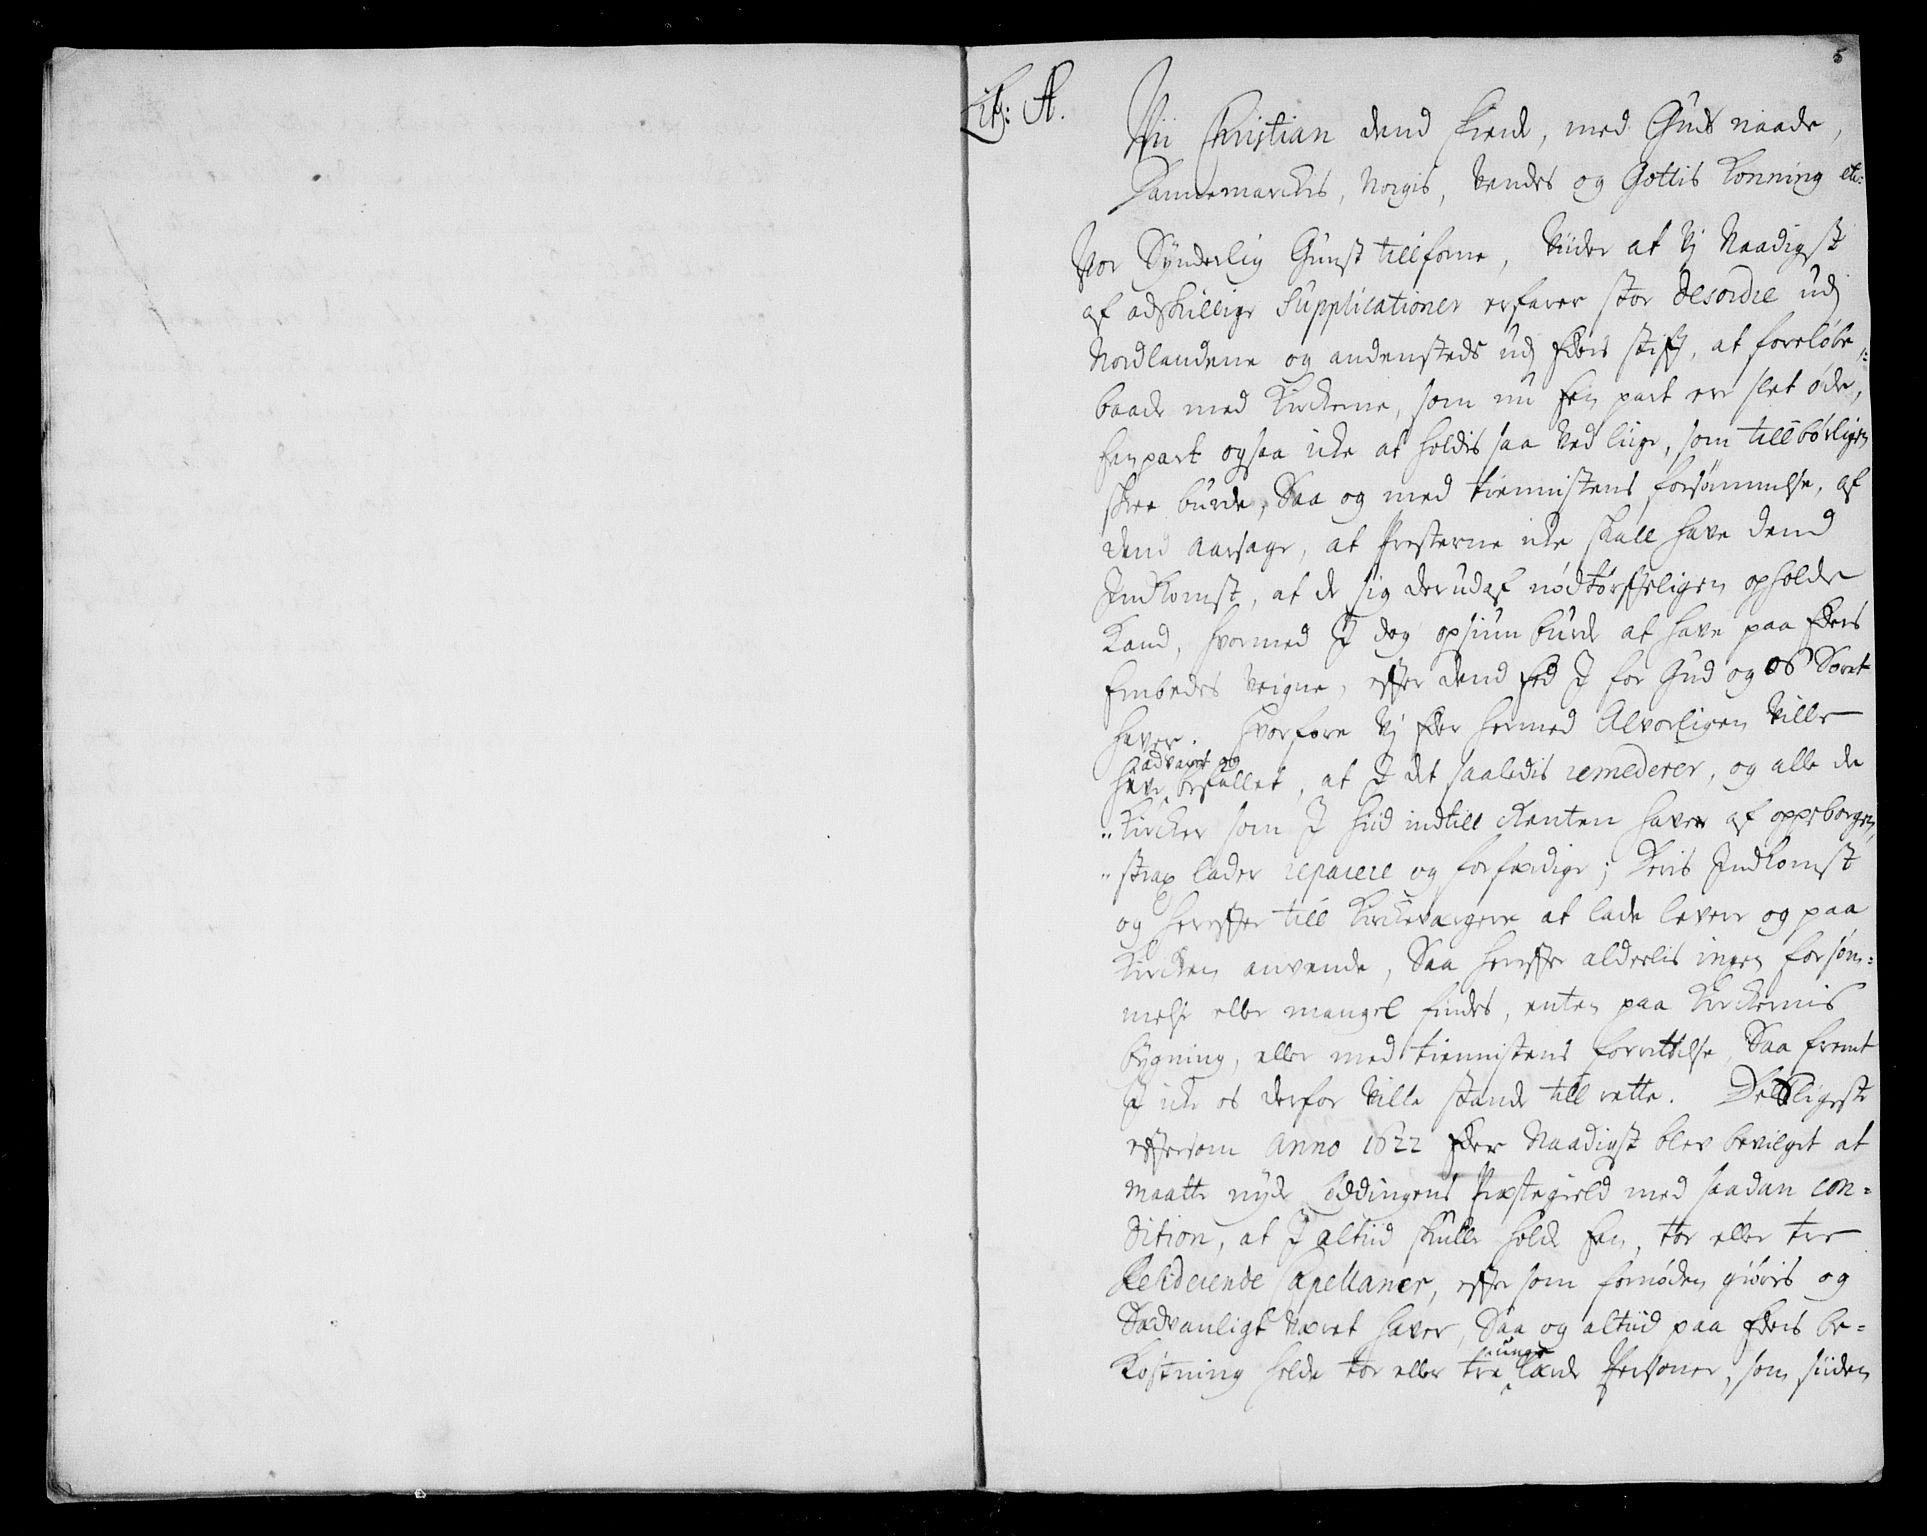 5
Lit: A.
Wii Christian dend fierde, med Guds naade,
Dannemarckis, Norgis, Vendes og Gottis Konning etc:
Vor Synderlig Gunst tillforne, Viider at Vj Naadigst
af adskillige Supplicationer erfarer stor desordre udj
Nordlandene og andensteds udj Eders stift, at foreløbe,
baade med Kirckerne, som nu Een part er slet øde,
Een part ogsaa icke at holdis saa ved liige, som tillbørligen
skee burde, Saa og med tiennistens forsømmelse, af
dend aarsage, at Presterne icke skall have dend
Indkomst, at de sig derudaf nødtørffteligen opholde
Kand, hvormed I dog opsiun burde at have paa Eders
Embedes Veigne, efter dend Eed I for Gud og os Soret
haver. Hvorfore Vj Eder hermed Alvorligen Ville
have advaret og befallet, at I det saaledis remederer, og alle de
" Kircker som I hiid indtill Renten haver af oppeborgen,
" strax lader reparere og forfærdige; Deris Indkomst
og herefter till Kirckeværgere at lade levere og paa
Kircken anvende, Saa herefter alderlis ingen forsøm=
melse eller mangel findes, enten paa Kirckernis
bygning, eller med tiennistens forrettelse, Saa fremt
I icke os derfor Ville stande till rette. Desligeste
eftersom Anno 1622 Eder Naadigst blev bevilget at
maatte nyde Oddingens Præstegield med saadan con=
dition, at I altiid skulle holde Een, toe eller tre
Residerende Capellaner, eftersom fornøden giøris og
Sædvanligt Været haver, Saa og altiid paa Eders be=
Kostning holde toe eller tre unge lærde Personer, som siiden